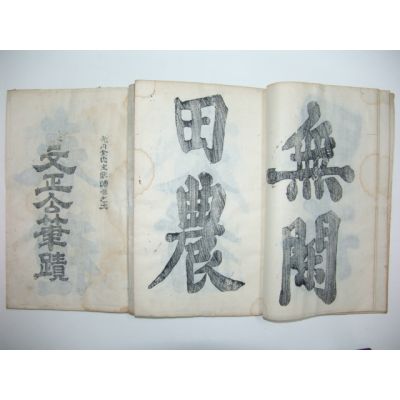 無閒
田農
文正公筆蹟